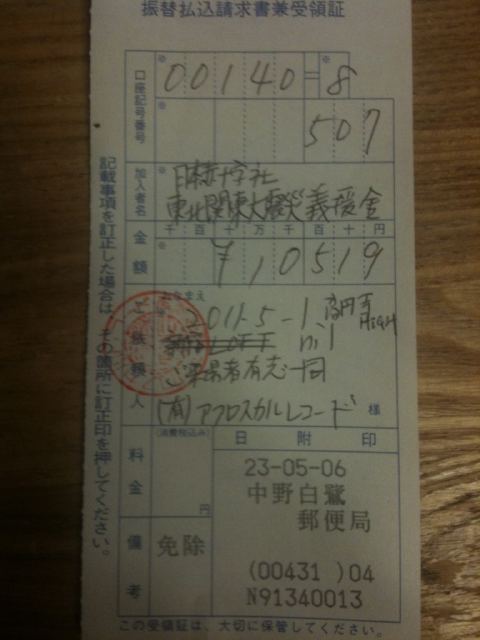 振替払込請求書兼受領証
口座記号番号
※
00140=8
※
507
加入者名
日本赤十字社
東北関東大震災義援金
金額
千百十万千百十円
¥10519
ご依頼人
おなまえ
※
2011-5-1 高円寺HIGH
ご来場者有志一同
(有)アフロスカルレコード 様
料金
(消費税込み)
円
備考
免除
日附印
23-05-06
中野白鷺
郵便局
(00431 )04
N91340013
記載事項を訂正した場合は、その箇所に訂正印を押してください。
この受領証は、大切に保管してください。